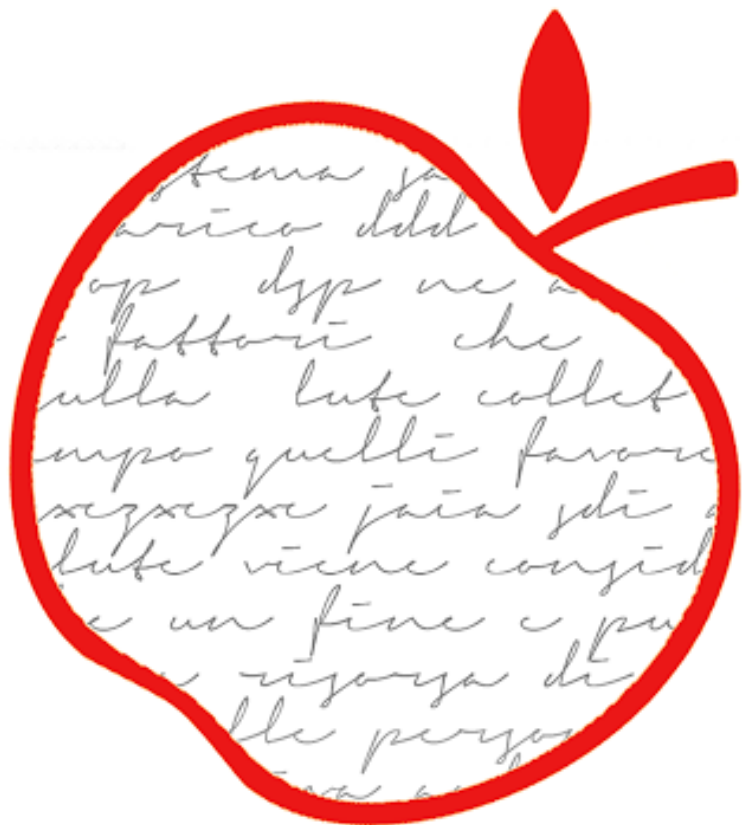 stema sa
arico ddd
op dsp ne a
fattori che
ulla lute collet
mpo quelli favore
xezxezxe jaia sdi
lute viene consid
e un fine e pu
e risorsa di
lle perso
iva